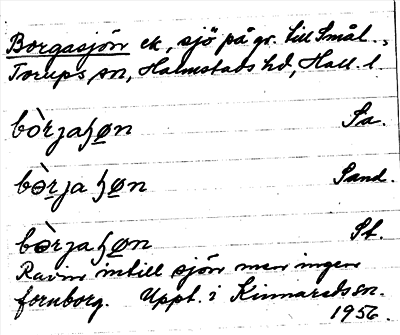 Borgasjön ek, sjö på gr. till Smål.,
Torups sn, Halmstads hd, Hall. l.
bòrjaɧøn Sa.
bɵ̀rjaɧøn Sand.
bɵ̀rjaɧøn St.
Ravin intill sjön men ingen
fornborg. Uppt. i Kinnareds sn.
1956.